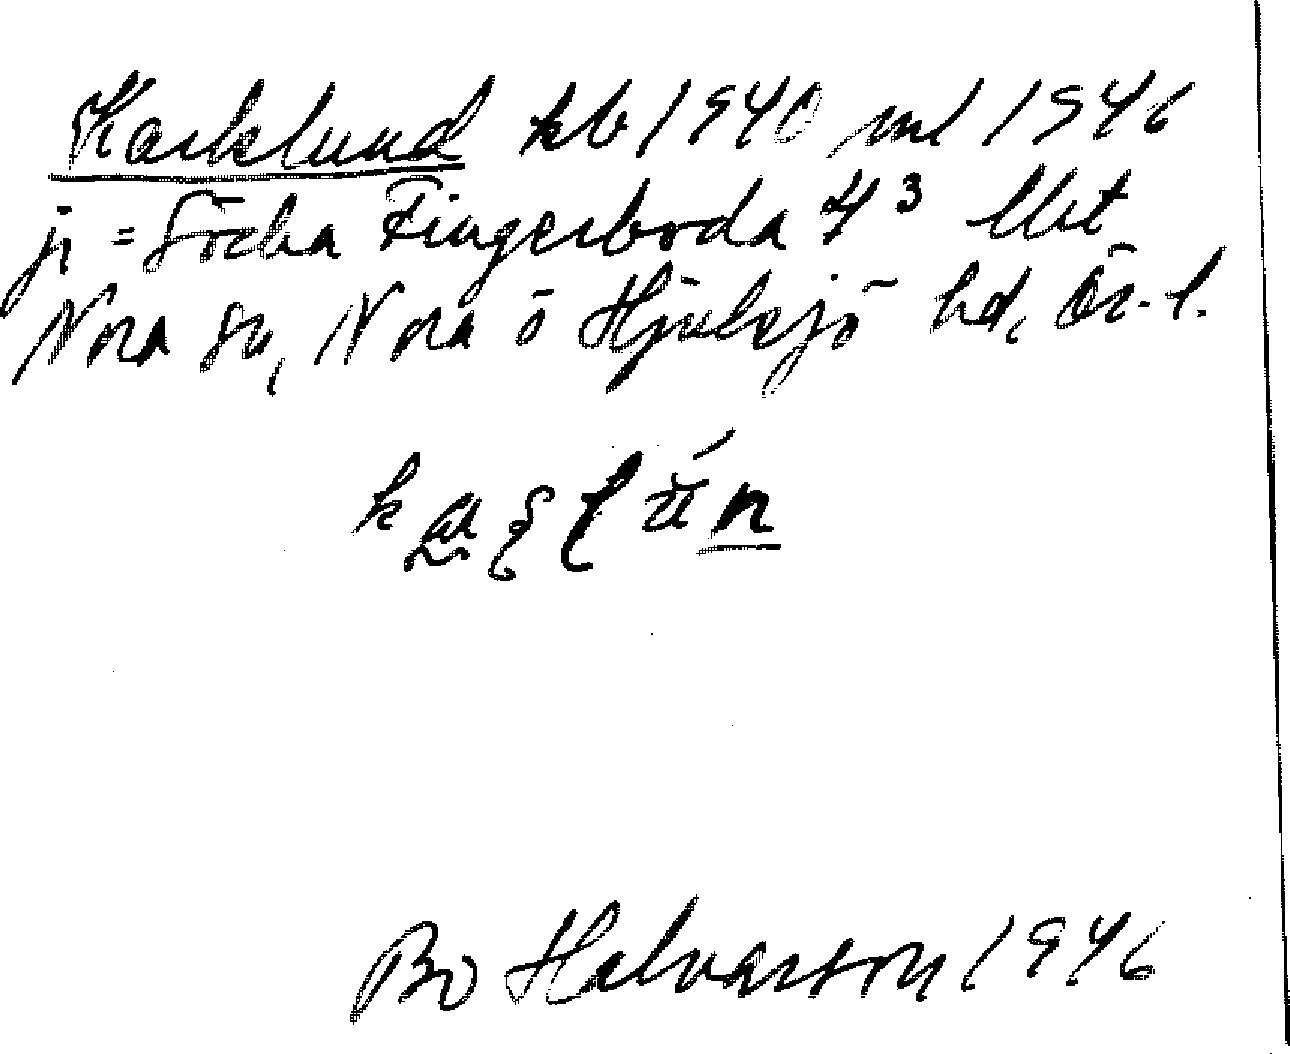 Karlslund kb 1940 ml 1946
ji = Södra Fingerboda 4³ lht
Nora sn, Nora o Hjulsjö hd, Ör. l.
Bo Halvarson 1946